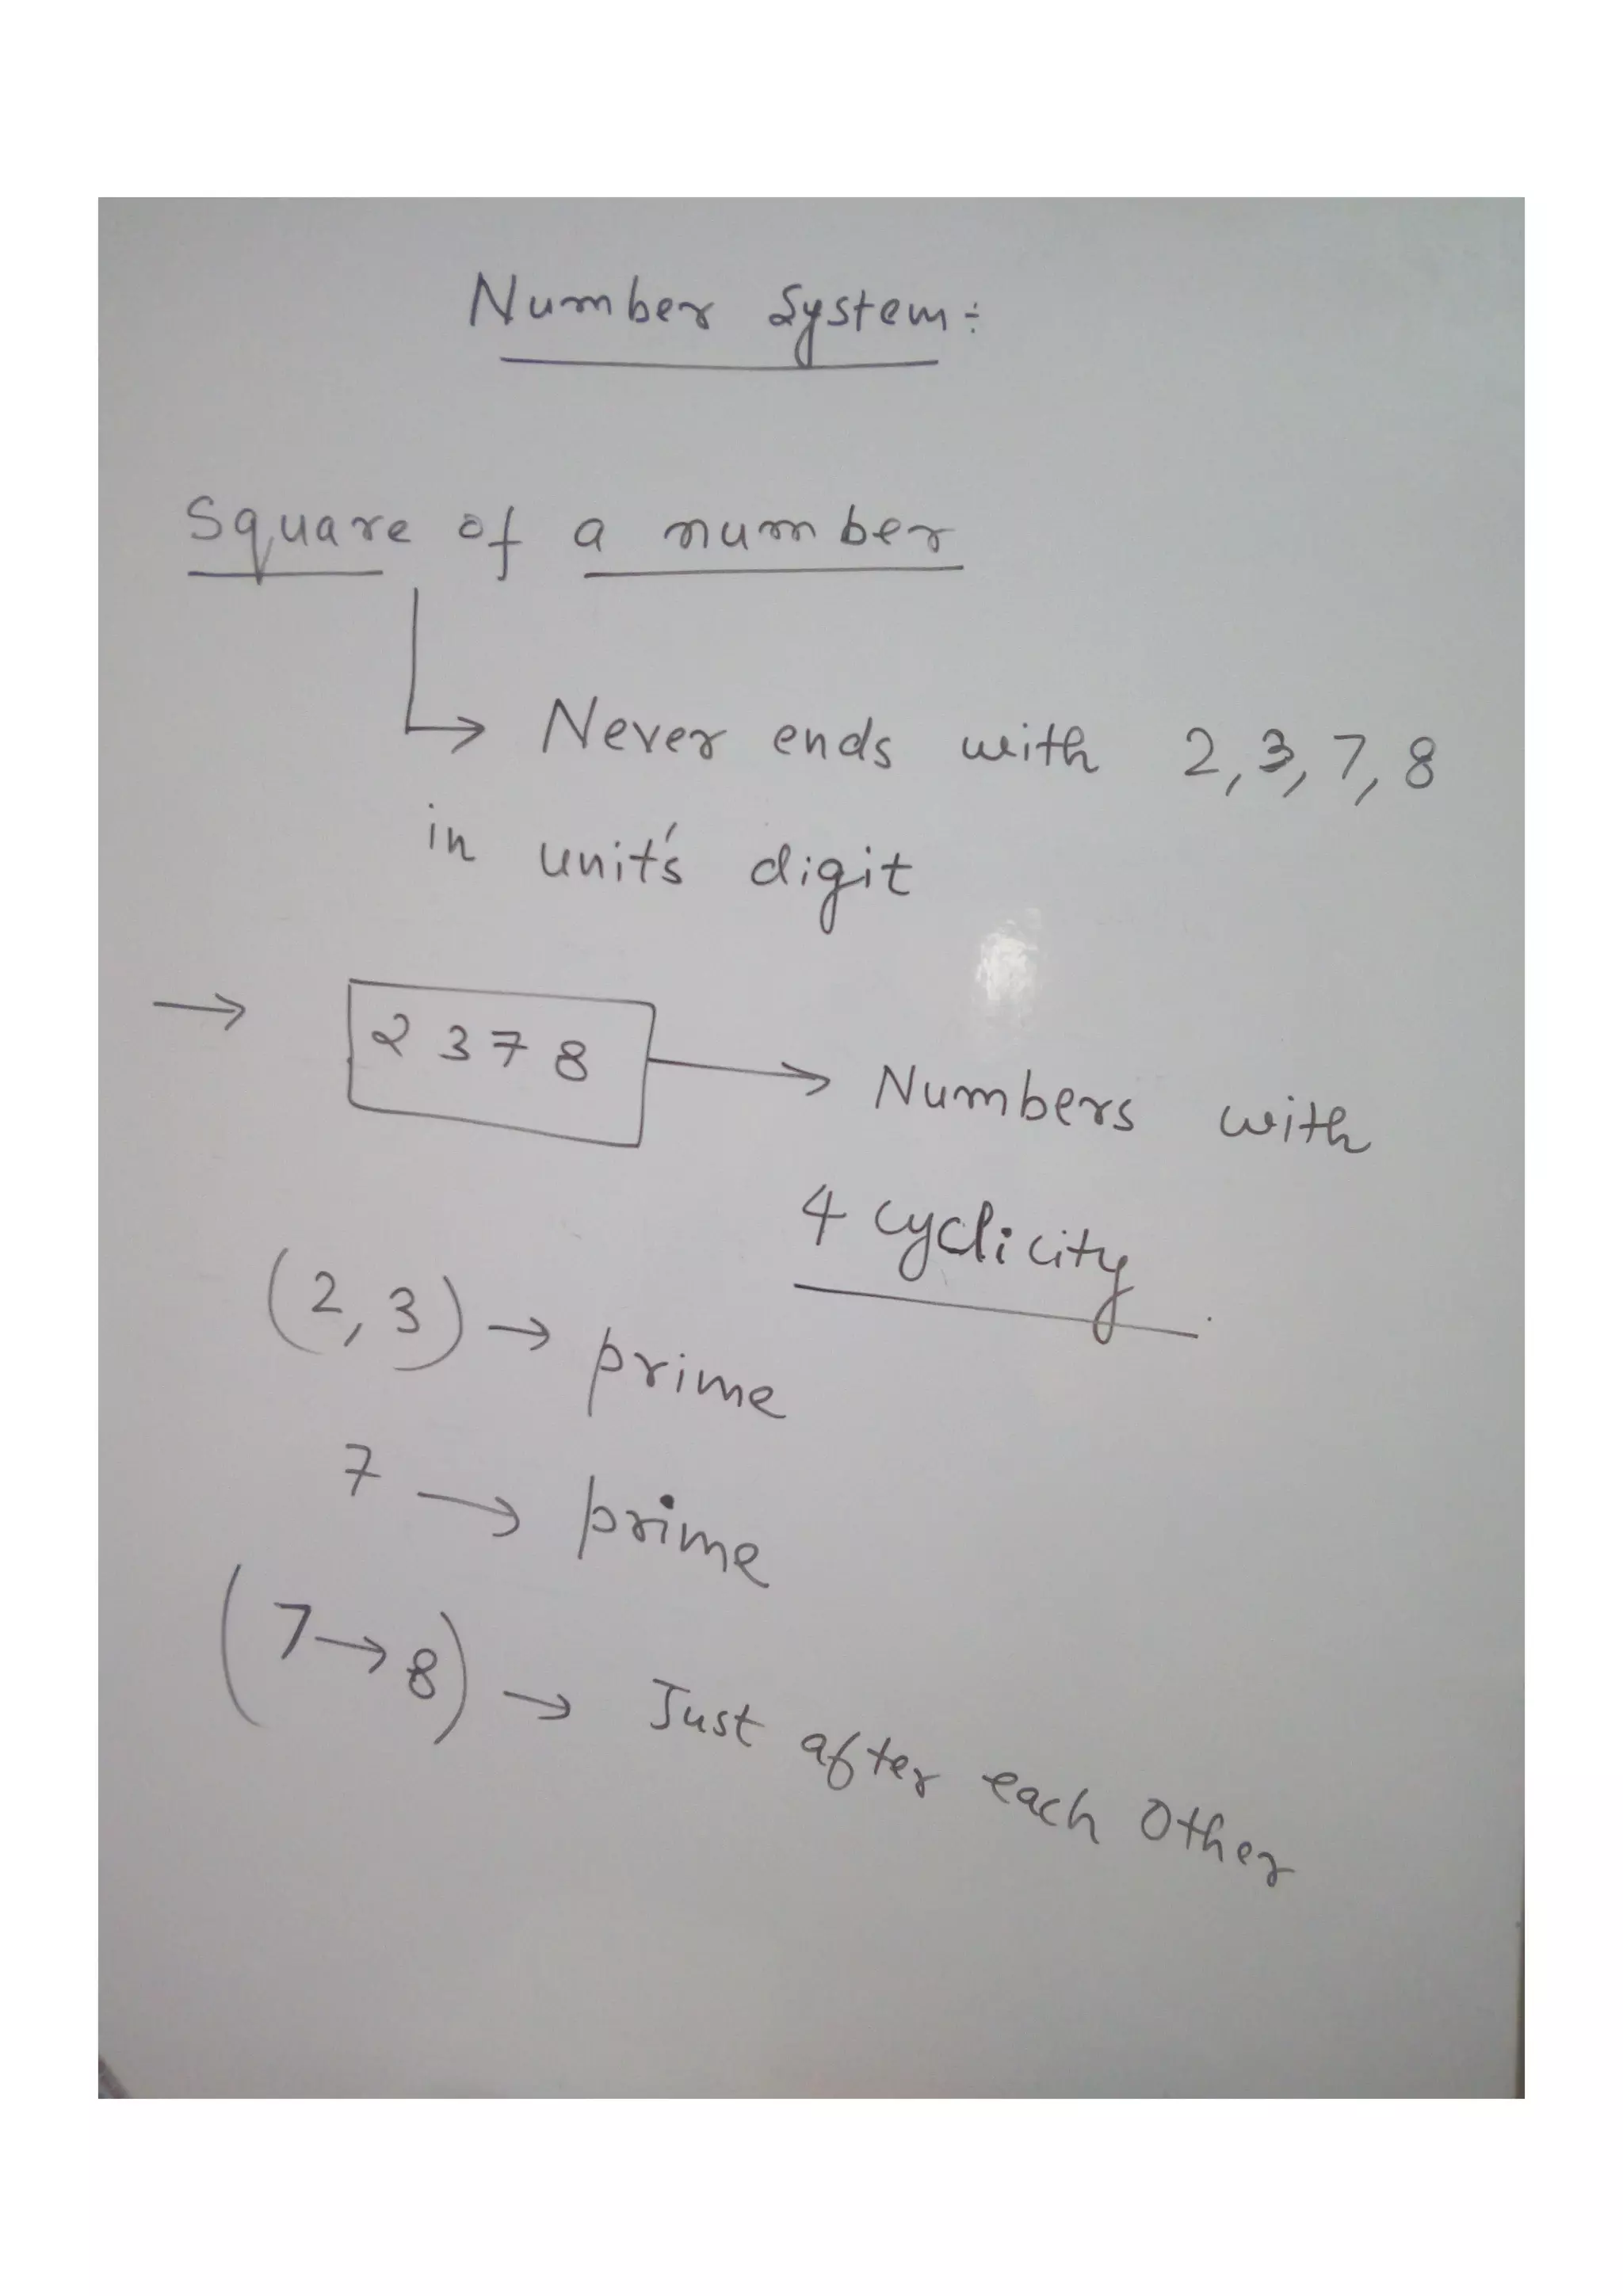 Number System :-
Square of a number
↳ Never ends with 2, 3, 7, 8
in unit's digit
→ 2 3 7 8 → Numbers with
4 cyclicity.
(2, 3) → prime
7 → prime
(7 → 8) → Just after each other